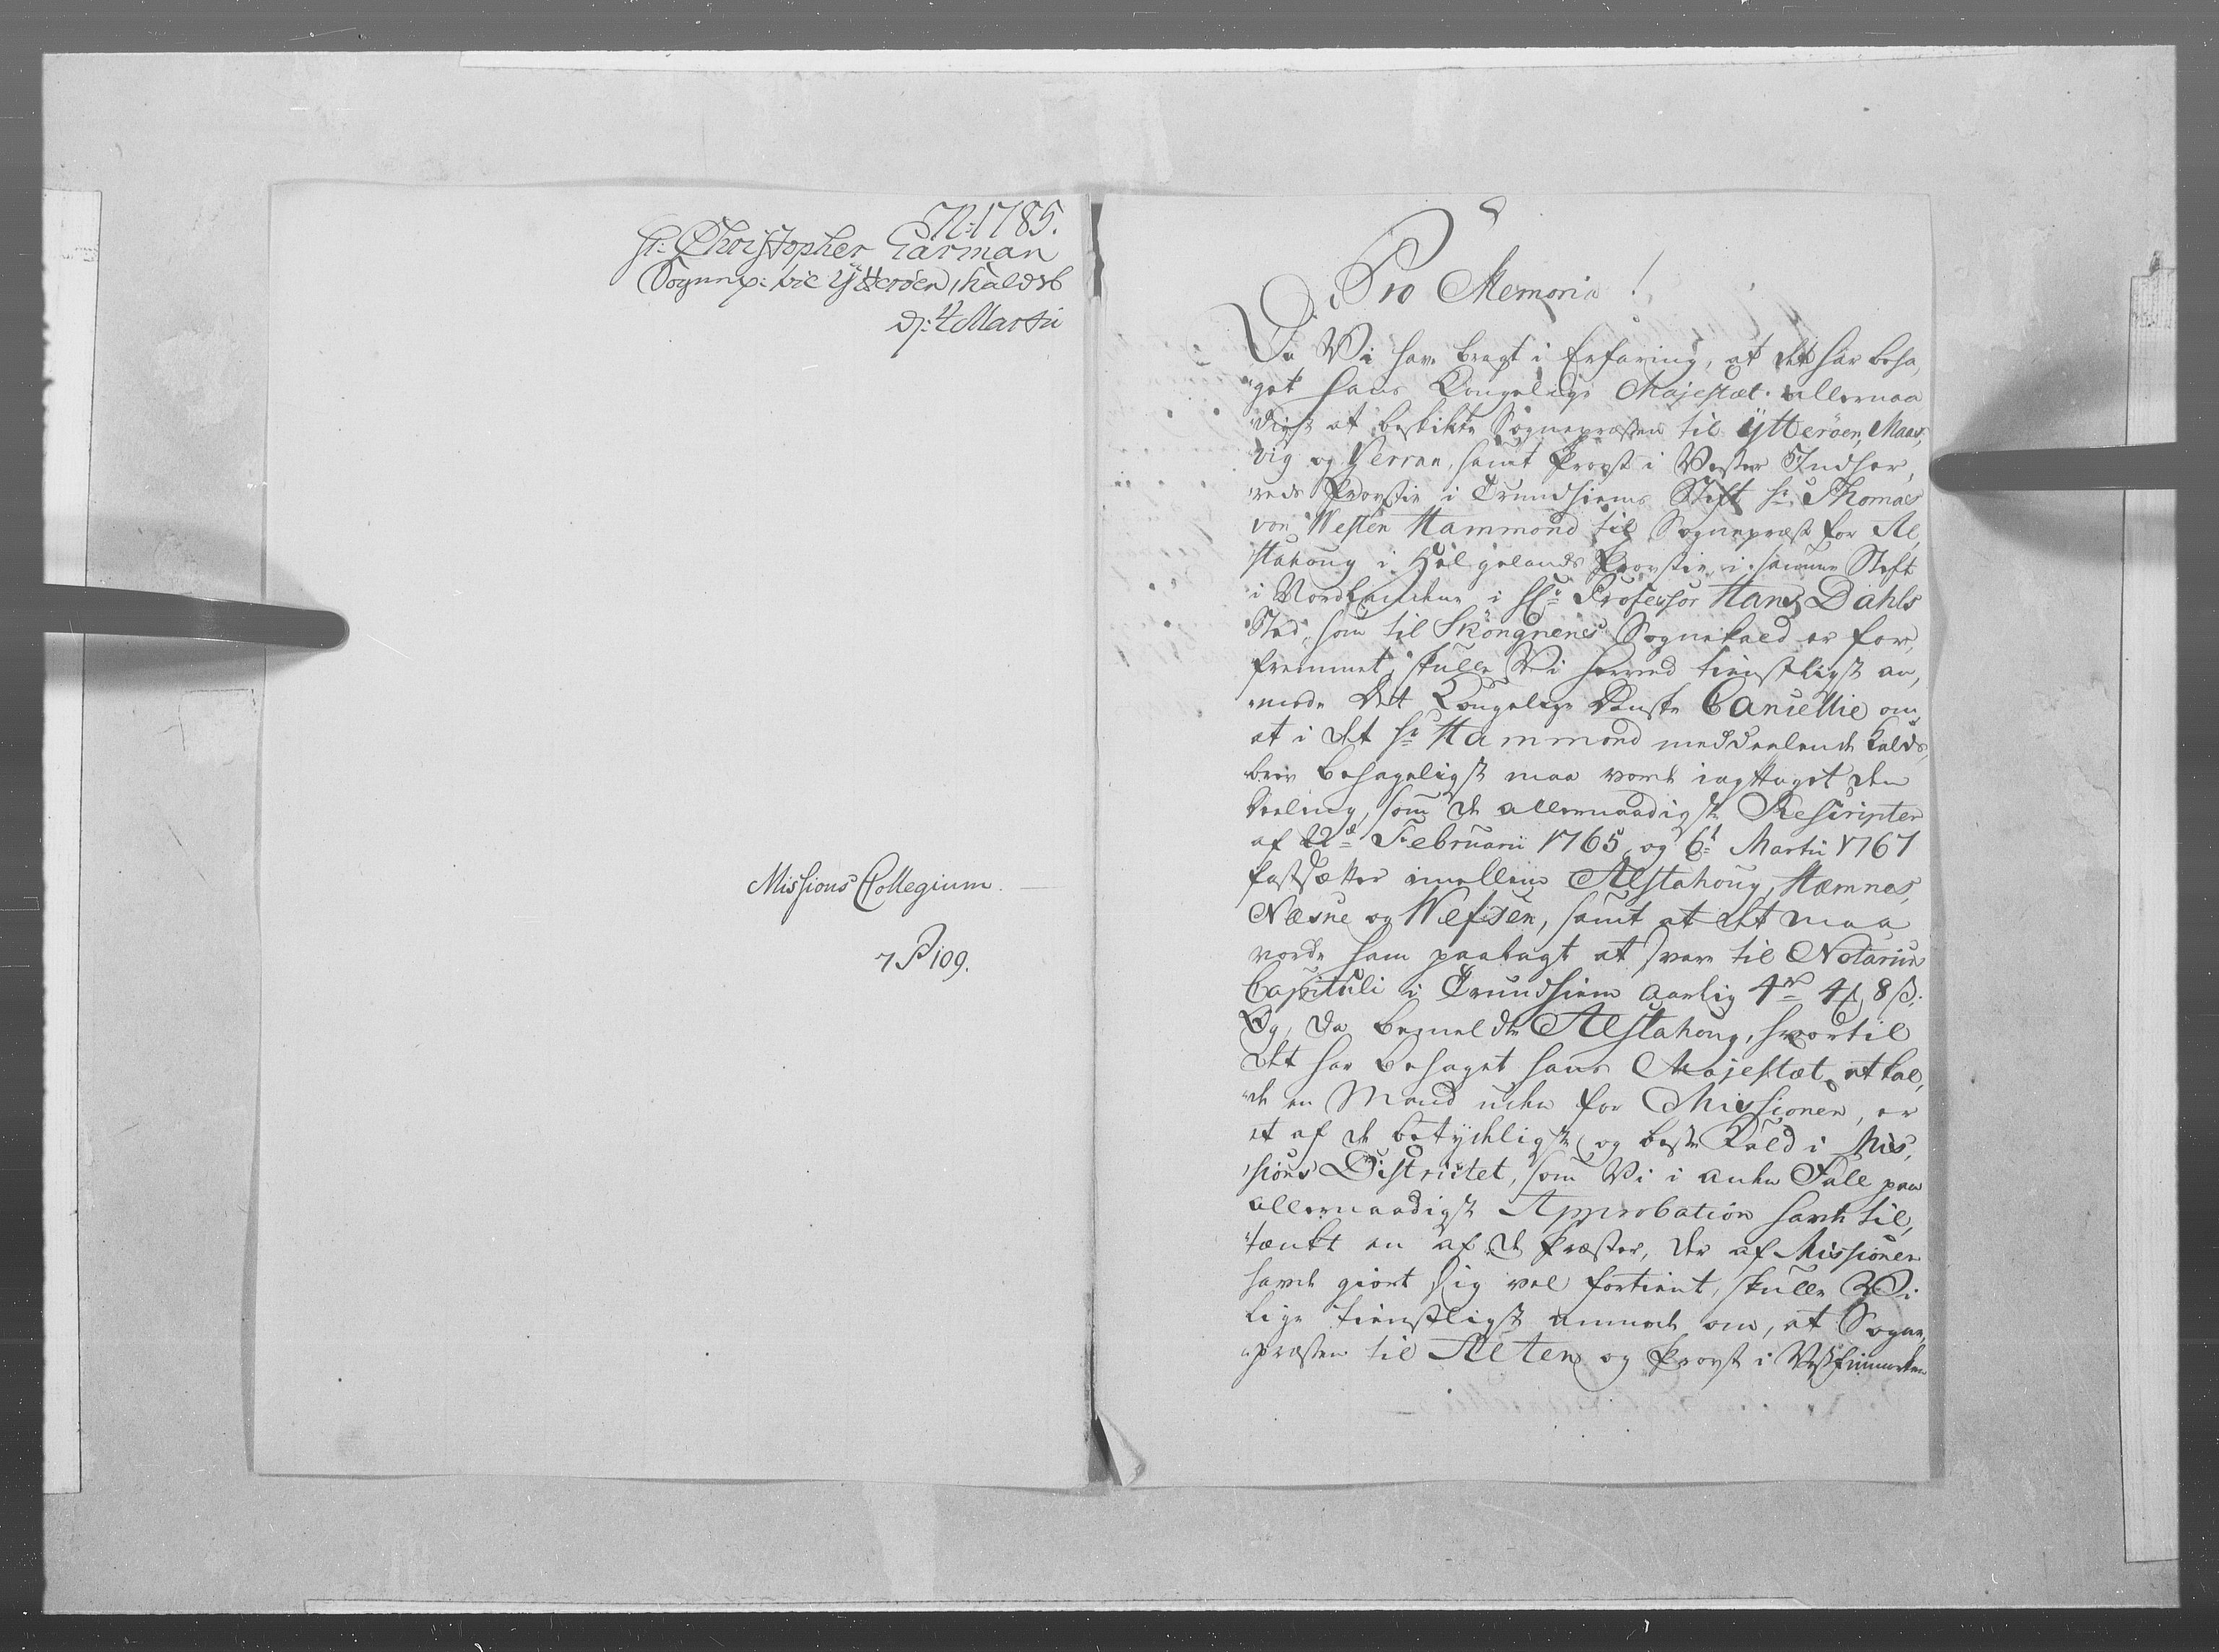 N: 1785.
Hr: Christopher Garman
Sognepr: til Ytterøen, Kaldsb
d: 4 Martii
Missions Collegium.
7 P 109.
Pro Memoria!
Da Vi have bragt i Erfaring, at det har beha,
"get Hans Kongelige Majestæt allernaa
digst at beskikke Sognepræsten til Ytterøen, Maas,
vig og Verran, samt Provst i Wester Indher,
reds Provstie i Trundhiems Stift Hr: Thomas
von Westen Hammond til Sognepræst for Al,
stahoug i Helgelands Provstie i samme Stift
i Nordlandene i Hr: Professor Hans Dahls
Sted, som til Skongnenes Sognekald er for,
fremmet; skulle Vi herved tienstligst an,
"mode Det Kongelige Danske Cancellie om,
at i det Hr: Hammond meddeelende Kalds,
brev behageligst maa vorde iagttaget den
Deeling, som de allernaadigste Rescripter
af 22de Februarii 1765 og 6t Martii 1767
fastsætter imellem Alstahoug, Hæmnes,
Næsne og Wefsen, samt at det maa
vorde ham paalagt at svare til Notarius
Capituli i Trundhiem aarlig 4rd 4 8 ß:
Og, da bemeldte Alstahoug, hvortil
det har behaget Hans Majestæt at kal,
"de en Mand uden for Missionen, er
et af de betydeligste og beste Kald i Mis,
"sions Districtet, som Vi i anden Fald paa
allernaadigst Approbation havde til,
"tænkt en af de Præster, der af Missionen
havde giort sig vel fortient, skulle Vi
lige tienstligst anmode om, at Sogne,
"præsten til Alten og Provst i Vestfinmarken